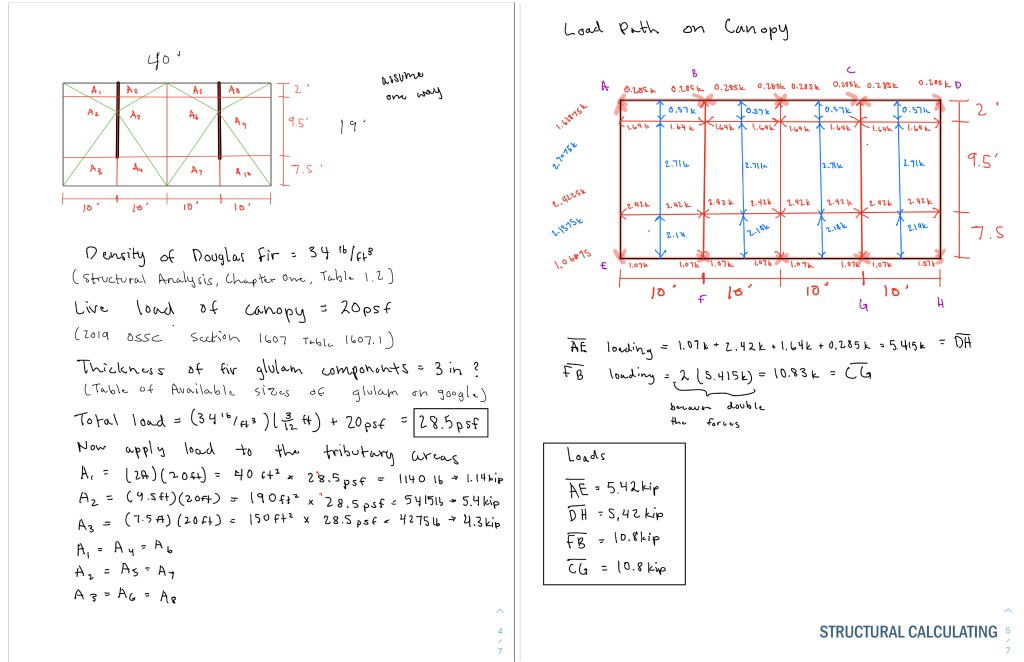 40'
A₁ A₂ A₅ A8
A₂ A₃ A₆ A₉
A₃ A₄ A₇ A₁₀
2'
9.5'
7.5'
19'
10' 10' 10' 10'
assume
one way
Density of Douglas Fir = 34 lb/ft³
(Structural Analysis, Chapter One, Table 1.2)
Live load of canopy = 20psf
(2019 OSSC Section 1607 Table 1607.1)
Thickness of fir glulam components = 3 in ?
(Table of Available sizes of glulam on google)
Total load = (34 lb/ft³)(3/12 ft) + 20psf = 28.5psf
Now apply load to the tributary areas
A₁ = (2ft)(20ft) = 40 ft² × 28.5psf = 1140 lb → 1.14kip
A₂ = (9.5ft)(20ft) = 190ft² × 28.5psf = 5415lb → 5.4kip
A₃ = (7.5ft)(20ft) = 150ft² × 28.5psf = 4275lb → 4.3kip
A₁ = A₄ = A₆
A₂ = A₅ = A₇
A₃ = A₆ = A₈
4
/
7
Load Path on Canopy
A B C D
0.285k 0.285k 0.285k 0.285k 0.285k 0.285k 0.285k
1.6
0.57k 0.57k 0.57k 0.57k
2'
1.64k 1.64k 1.64k 1.64k 1.64k 1.64k 1.64k 1.64k
2.7075k
2.71k 2.71k 2.71k 2.71k
9.5'
2.4225k
2.42k 2.42k 2.42k 2.42k 2.42k 2.42k 2.42k 2.42k
2.1375k
2.14 2.14k 2.14k 2.14k
7.5
1.06875
1.07k 1.07k 1.07k 1.07k 1.07k 1.07k 1.07k 1.07k
E
10' 10' 10' 10'
F G H
AE loading = 1.07k + 2.42k + 1.64k + 0.285k = 5.415k = DH
FB loading = 2(5.415k) = 10.83k = CG
because double
the forces
Loads
AE = 5.42kip
DH = 5.42kip
FB = 10.8kip
CG = 10.8kip
STRUCTURAL CALCULATING
5
/
7